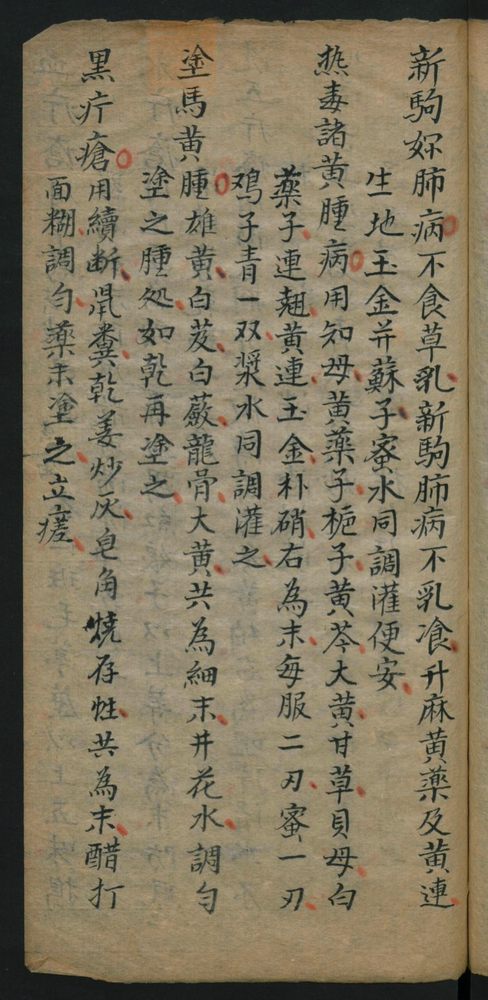 新駒妳肺病不食草乳新駒肺病不乳飡升麻黄藥及黄連
生地玉金并蘇子蜜水同調灌便安
热毒諸黄腫病用知母黄藥子梔子黄芩大黄甘草貝母白
藥子連翹黄連玉金朴硝右為末每服二刃蜜一刃
鸡子青一双漿水同調灌之
塗馬黄腫雄黄白芨白蘞龍骨大黄共為細末井花水調勻
塗之腫処如乾再塗之
黒疔瘡用續断鼡糞乾姜炒灰皂角燒存性共為末醋打
面糊調勻藥末塗之立瘥